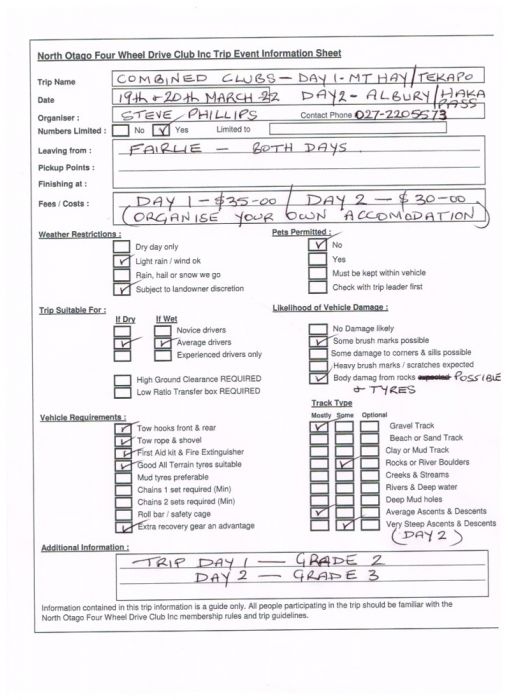 North Otago Four Wheel Drive Club Inc Trip Event Information Sheet
Trip Name COMBINED CLUBS - DAY 1 - MT HAY / TEKAPO
Date 19th + 20th MARCH 22 DAY 2 - ALBURY / HAKA PASS
Organiser : STEVE PHILLIPS Contact Phone 027-2205573
Numbers Limited : No Yes Limited to
Leaving from : FAIRLIE - BOTH DAYS
Pickup Points :
Finishing at :
Fees / Costs : DAY 1 - $35-00 / DAY 2 - $30-00
(ORGANISE YOUR OWN ACCOMODATION)
Weather Restrictions :
Dry day only
Light rain / wind ok
Rain, hail or snow we go
Subject to landowner discretion
Pets Permitted :
No
Yes
Must be kept within vehicle
Check with trip leader first
Trip Suitable For :
If Dry If Wet
Novice drivers
Average drivers
Experienced drivers only
High Ground Clearance REQUIRED
Low Ratio Transfer box REQUIRED
Likelihood of Vehicle Damage :
No Damage likely
Some brush marks possible
Some damage to corners & sills possible
Heavy brush marks / scratches expected
Body damag from rocks expected POSSIBLE
+ TYRES
Vehicle Requirements :
Tow hooks front & rear
Tow rope & shovel
First Aid kit & Fire Extinguisher
Good All Terrain tyres suitable
Mud tyres preferable
Chains 1 set required (Min)
Chains 2 sets required (Min)
Roll bar / safety cage
Extra recovery gear an advantage
Track Type
Mostly Some Optional
Gravel Track
Beach or Sand Track
Clay or Mud Track
Rocks or River Boulders
Creeks & Streams
Rivers & Deep water
Deep Mud holes
Average Ascents & Descents
Very Steep Ascents & Descents
(DAY 2)
Additional Information :
TRIP DAY 1 - GRADE 2
DAY 2 - GRADE 3
Information contained in this trip information is a guide only. All people participating in the trip should be familiar with the
North Otago Four Wheel Drive Club Inc membership rules and trip guidelines.